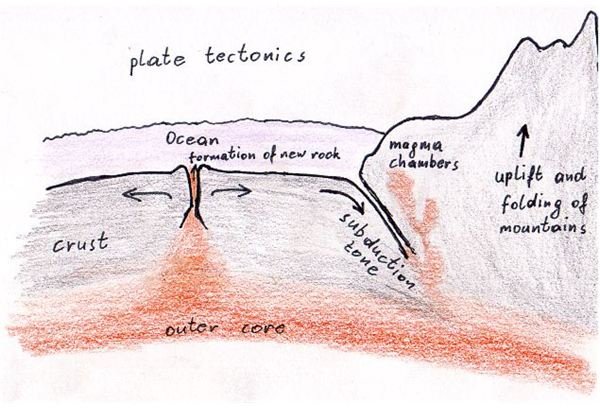 plate tectonics
Ocean
formation of new rock
magma
chambers
uplift and
folding of
mountains
crust
subduction
zone
outer core